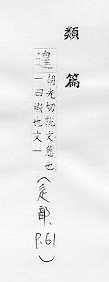 類篇
遑胡光切說文急也
一曰暇也文一
(辵部, P.61)